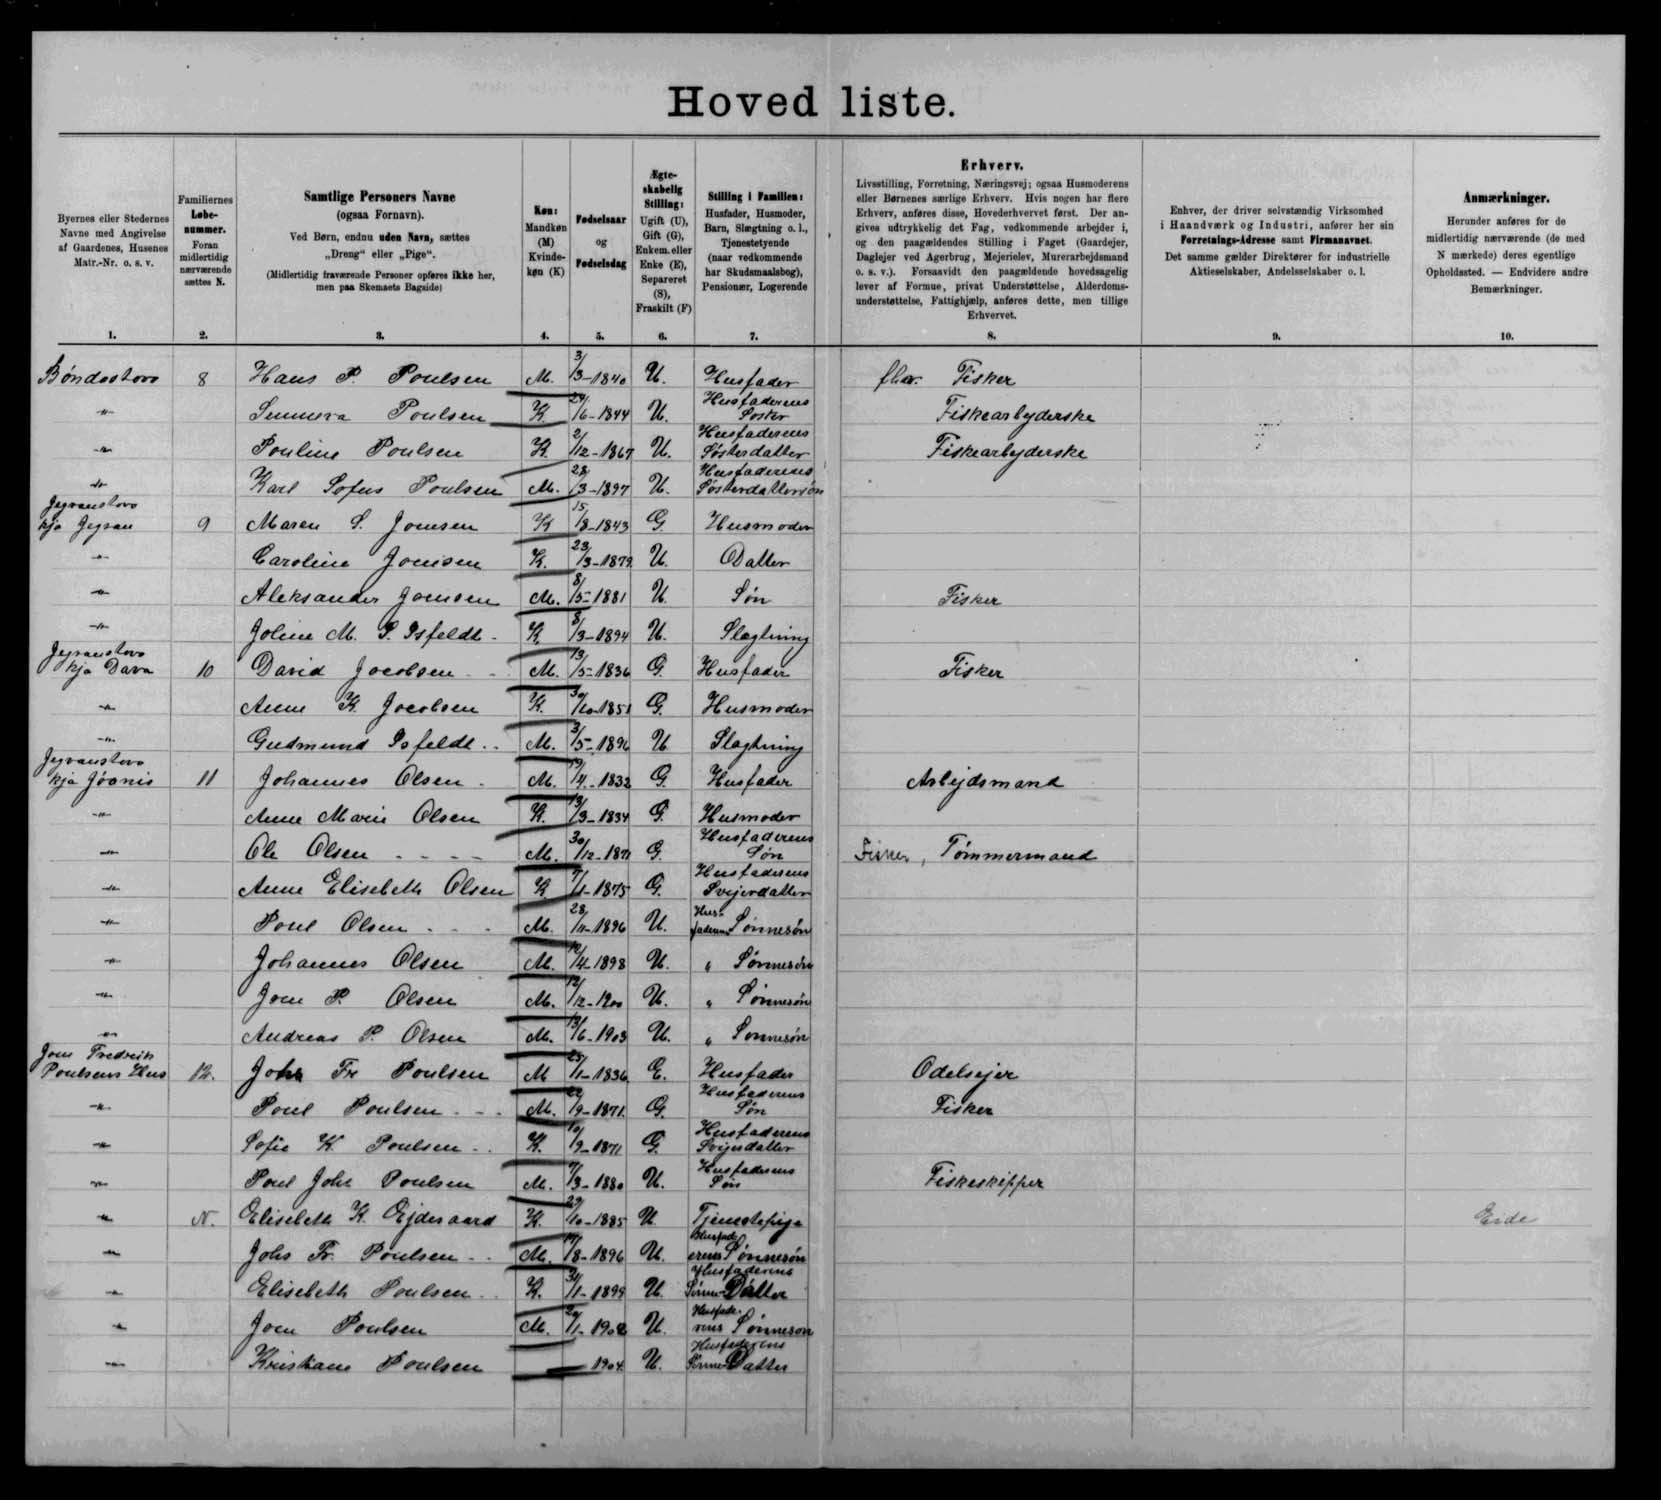 Hoved liste.
Byernes eller Stedernes Navne med Angivelse af Gaardenes, Husenes Matr.-Nr. o. s. v.
Familiernes Løbenummer. Foran midlertidig nærværende sættes N.
Samtlige Personers Navne (ogsaa Fornavn). Ved Børn, endnu uden Navn, sættes „Dreng“ eller „Pige“. (Midlertidig fraværende Personer opføres ikke her, men paa Skemaets Bagside)
Køn: Mandkøn (M) Kvindekøn (K)
Fødselsaar og Fødselsdag
Ægteskabelig Stilling: Ugift (U), Gift (G), Enkem. eller Enke (E), Separeret (S), Fraskilt (F)
Stilling i Familien: Husfader, Husmoder, Barn, Slægtning o. l., Tjenestetyende (naar vedkommende har Skudsmaalsbog), Pensionær, Logerende
Erhverv. Livsstilling, Forretning, Næringsvej; ogsaa Husmoderens eller Børnenes særlige Erhverv. Hvis nogen har flere Erhverv, anføres disse, Hovederhvervet først. Der angives udtrykkelig det Fag, vedkommende arbejder i, og den paagældendes Stilling i Faget (Gaardejer, Daglejer ved Agerbrug, Mejerielev, Murerarbejdsmand o. s. v.). Forsaavidt den paagældende hovedsagelig lever af Formue, privat Understøttelse, Alderdomsunderstøttelse, Fattighjælp, anføres dette, men tillige Erhvervet.
Enhver, der driver selvstændig Virksomhed i Haandværk og Industri, anfører her sin Forretnings-Adresse samt Firmanavnet. Det samme gælder Direktører for industrielle Aktieselskaber, Andelsselskaber o. l.
Anmærkninger. Herunder anføres for de midlertidig nærværende (de med N mærkede) deres egentlige Opholdssted. — Endvidere andre Bemærkninger.
1. 2. 3. 4. 5. 6. 7. 8. 9. 10.
Bøndastovo 8 Hans P. Poulsen M. 3/3-1840 U. Husfader Fisker
-"- Sunneva Poulsen K. 24/6-1844 U. Husfaderens Søster Fiskearbyderske
-"- Pouline Poulsen K. 2/12-1867 U. Husfaderens Søsterdatter Fiskearbyderske
-"- Karl Sofus Poulsen M. 28/3-1897 U. Husfaderens Søsterdattersøn
Jegvanstovo kja Jegvan 9 Maren S. Joensen K 15/8-1843 G. Husmoder
-"- Caroline Joensen K. 23/3-1879 U. Datter
-"- Aleksander Joensen M. 8/5-1881 U. Søn Fisker
-"- Joline M. S. Isfeldt - K. 8/3-1894 U. Slægtning
Jegvanstovo kja Dava 10 David Jacobsen M. 13/5-1836 G. Husfader Fisker
-"- Anne K. Jacobsen K. 30/10-1851 G. Husmoder
-"- Gudmund Isfeldt M. 3/5-1896 U Slægtning
Jegvanstovo kja Jóanis 11 Johannes Olsen M. 19/4-1832 G. Husfader Arbejdsmand
-"- Anne Marie Olsen K. 13/3-1834 G. Husmoder
-"- Ole Olsen M. 30/12-1871 G. Husfaderens Søn Fisker, Tømmermand
-"- Anne Elisebeth Olsen K 7/1-1875 G. Husfaderens Svigerdatter
-"- Poul Olsen M. 28/11-1896 U. Husfaderens Sønnesøn
-"- Johannes Olsen M. 12/4-1898 U. " Sønnesøn
-"- Joen P. Olsen M. 12/12-1900 U. " Sønnesøn
-"- Andreas P. Olsen M. 13/6-1903 U. " Sønnesøn
Joen Fredrik Poulsens Hus 12. Johs Fr Poulsen M 25/1-1836 E. Husfader Odelsejer
-"- Poul Poulsen M. 22/9-1871. G. Husfaderens Søn Fisker
-"- Sofie K Poulsen K. 10/9-1871 G. Husfaderens Svigerdatter
-"- Poul Johs Poulsen M. 7/3-1880 U. Husfaderens Søn Fiskeskipper
-"- N. Elisebeth K. Ejdesgaard K. 29/10-1885 U Tjenestepige Eide
-"- Johs Fr. Poulsen M. 17/8-1896 U. Husfaderens Sønnesøn
-"- Elisebeth Poulsen K. 31/1-1899 U. Husfaderens Sønne-Datter
-"- Joen Poulsen M. 20/1-1902 U. Husfaderens Sønnesøn
-"- Kristiane Poulsen 1904 U. Husfaderens Sønne-Datter